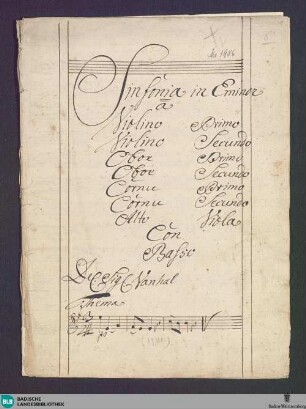 Sinfonia in Eminor
a
Violino Primo
Violino Secundo
Oboe Primo
Oboe Secundo
Cornu Primo
Cornu Secundo
Alto Viola
Con
Basso
Del Sig. Vanhal
Thema
BLB BADISCHE LANDESBIBLIOTHEK
Baden-Württemberg